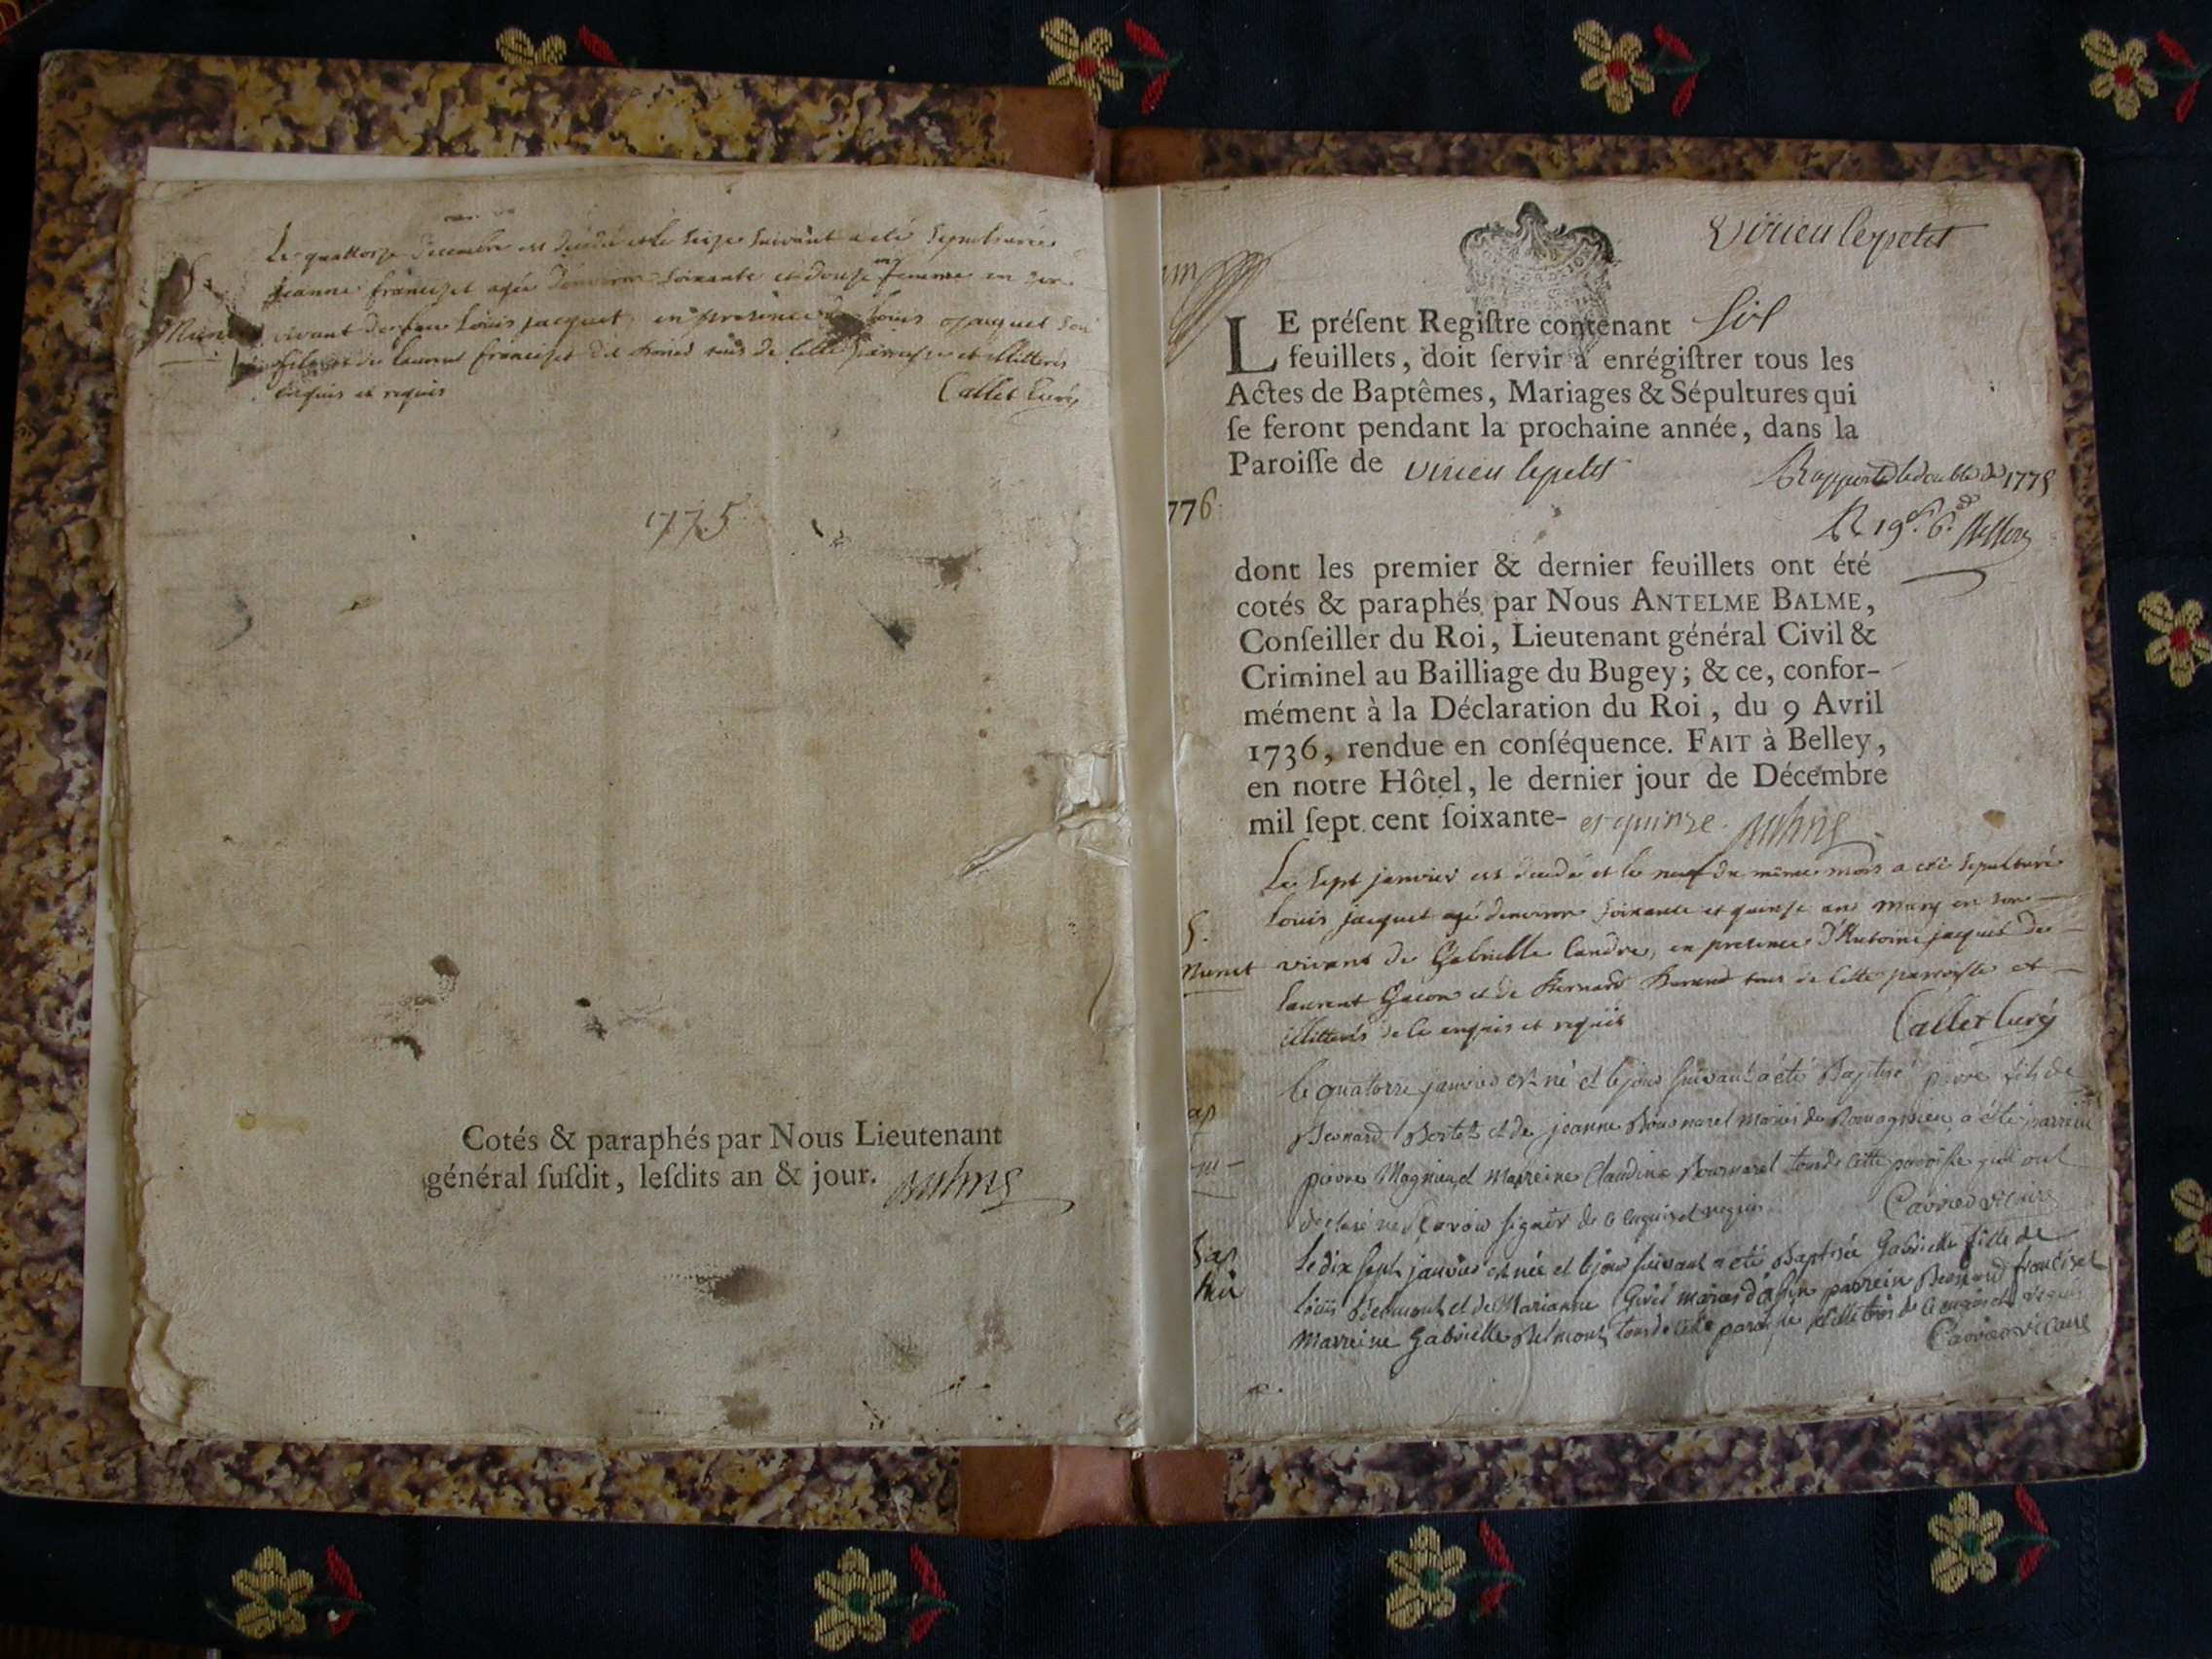 Le quattorze decembre est decedée et le seize suivant a eté sepulturée
jeanne francizet agée denviron soixante et douze femme en son
vivant de feu Louis jacquet en presence de Louis jacquet son
fils et de laurent francizet dit tous de cette parroisse et illitterés
enquis et requis
Callet Curé
1775
Cotés & paraphés par Nous Lieutenant
général ſuſdit, leſdits an & jour. Balme
virieu le petit
un
LE préſent Regiſtre contenant six
feuillets, doit ſervir à enrégiſtrer tous les
Actes de Baptêmes, Mariages & Sépultures qui
ſe feront pendant la prochaine année, dans la
Paroiſſe de virieu le petit
Rapporté le double de 1775
776
R 19ˢ 6ᵈ
dont les premier & dernier feuillets ont été
cotés & paraphés par Nous ANTELME BALME,
Conſeiller du Roi, Lieutenant général Civil &
Criminel au Bailliage du Bugey; & ce, confor-
mément à la Déclaration du Roi, du 9 Avril
1736, rendue en conſéquence. FAIT à Belley,
en notre Hôtel, le dernier jour de Décembre
mil ſept cent ſoixante- et quinze. Balme
Le sept janvier est decedé et le neuf du même mois a eté sepulturé
Louis jacquet agé denviron soixante et quinze ans mary en son
S.
Munet
vivant de Gabrielle Candre, en presence d'Antoine jacquet de
laurent Gacon et de Bernard tous de cette parroisse et
illitterés de ce enquis et requis
Callet Curé
le quatorze janvier est né et le jour suivant a été Baptisé pierre fils de
Bap
Bernard Bertet et de jeanne Bournarel mariés de Romagnieu a été parrein
pierre Magnin et Marreine Claudine Bournarel tous de cette paroisse qui ont
declaré ne sçavoir signer de ce enquis et requis
Carrier vicaire
Bap
le dix sept janvier est née et le jour suivant a été Baptisée Gabrielle fille de
Louis Belmont et de Marianne mariés d'assin parrein Bernard francizet
Marreine Gabrielle Belmont tous de cette paroisse illitterés de ce enquis et requis
Carrier vicaire